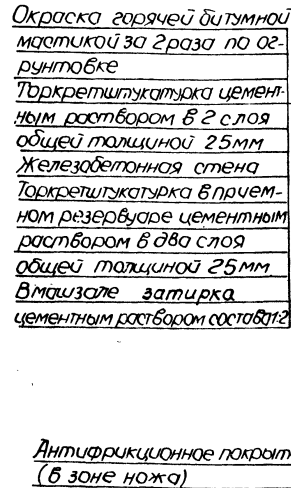 Окраска горячей битумной
мастикой за 2 раза по ог-
рунтовке
Торкретштукатурка цемент-
ным раствором в 2 слоя
общей толщиной 25мм
Железобетонная стена
Торкретштукатурка в прием-
ном резервуаре цементным
раствором в два слоя
общей толщиной 25мм
В машзале затирка
цементным раствором состава 1:2
Антифрикционное покрыт
(в зоне ножа)